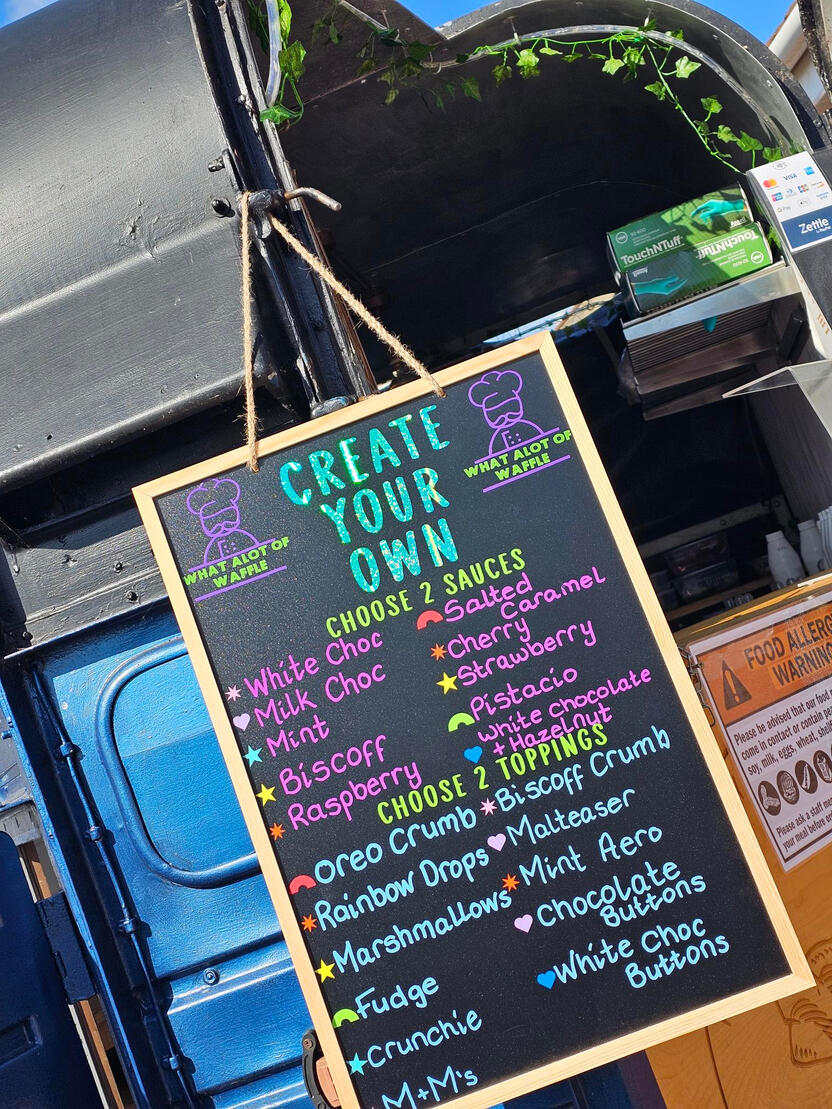 CREATE
YOUR
OWN
WHAT ALOT OF
WAFFLE
WHAT ALOT OF
WAFFLE
CHOOSE 2 SAUCES
White Choc
Milk Choc
Mint
Biscoff
Raspberry
Salted
Caramel
Cherry
Strawberry
Pistacio
White Chocolate
+ Hazelnut
CHOOSE 2 TOPPINGS
Oreo Crumb
Rainbow Drops
Marshmallows
Fudge
Crunchie
M+M's
Biscoff Crumb
Malteaser
Mint Aero
Chocolate
Buttons
White Choc
Buttons
TouchNTuff
TouchNTuff
VISA
Pay
Zettle
by PayPal
FOOD ALLER
WARNIN
Please be advised that our food
come in contact or contain p
soy, milk, eggs, wheat, sh
Please ask a staff m
your meal before o